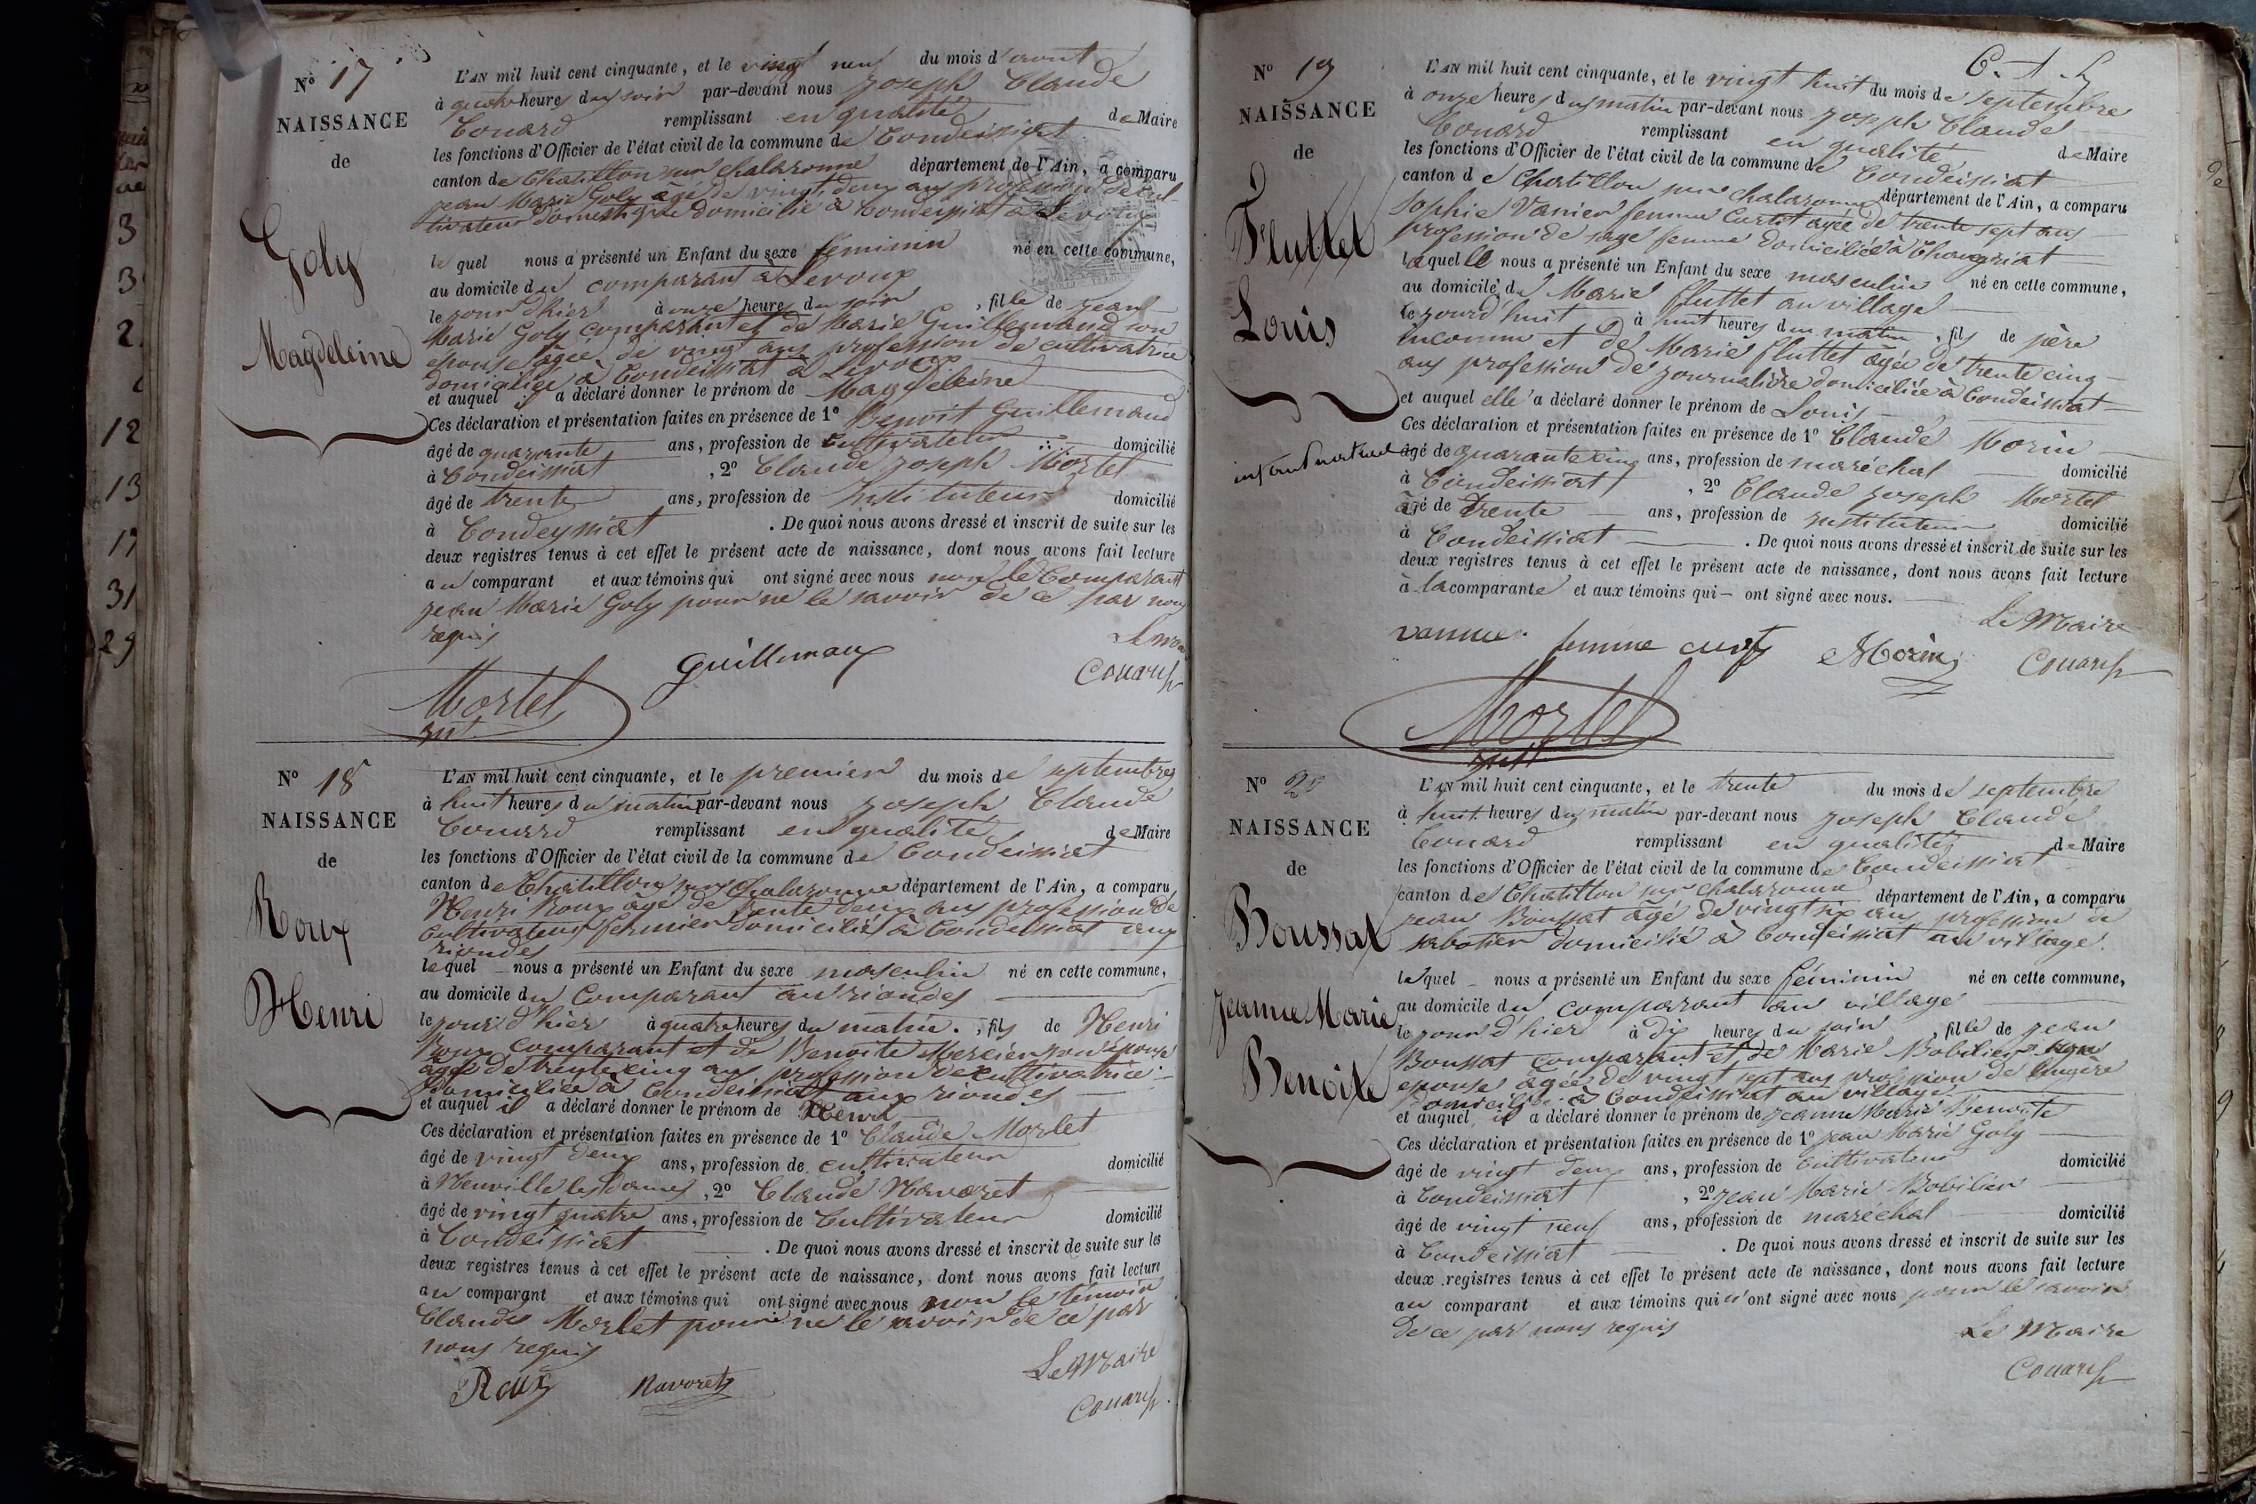 N° 17
NAISSANCE
de
Goly
Magdeleine
L'AN mil huit cent cinquante, et le vingt neuf du mois d'aout
à quatre heures du soir par-devant nous joseph Claude
Couard remplissant en qualité de Maire
les fonctions d'Officier de l'état civil de la commune de Condeissiat
canton de Chatillon sur chalaronne département de l'Ain, a comparu
jean Marie Goly âgé de vingt deux ans profession de cul-
tivateur domestique domicilié à Condeissiat à Levoux
lequel nous a présenté un Enfant du sexe féminin né en cette commune,
au domicile du comparant à Levoux
le jour d'hier à onze heures du soir, fille de jean
Marie Goly comparant et de Marie Guillemaud son
epouse âgée de vingt ans profession de cultivatrice
domiciliée à Condeissiat à Levoux
et auquel il a déclaré donner le prénom de Magdeleine
Ces déclaration et présentation faites en présence de 1° Benoit Guillemaud
âgé de quarante ans, profession de cultivateur domicilié
à Condeissiat, 2° Claude joseph Mortel
âgé de trente ans, profession de Instituteur domicilié
à Condeyssiat. De quoi nous avons dressé et inscrit de suite sur les
deux registres tenus à cet effet le présent acte de naissance, dont nous avons fait lecture
au comparant et aux témoins qui ont signé avec nous non le Comparant
jean Marie Goly pour ne le savoir de ce par nous
requis
Le maire
Guillemaux
Couard
Mortel
inst.
N° 18
NAISSANCE
de
Roux
Henri
L'AN mil huit cent cinquante, et le premier du mois de septembre
à huit heures du matin par-devant nous joseph Claude
Couard remplissant en qualité de Maire
les fonctions d'Officier de l'état civil de la commune de Condeissiat
canton de Chatillon sur Chalaronne département de l'Ain, a comparu
Henri Roux âgé de trente deux ans profession de
Cultivateur fermier domicilié à Condeissiat aux
riondes
lequel nous a présenté un Enfant du sexe masculin né en cette commune,
au domicile du Comparant aux riondes
le jour d'hier à quatre heures du matin, fils de Henri
Roux comparant et de Benoite Mercier son épouse
âgée de trente cinq ans profession de cultivatrice
domiciliée à Condeissiat aux riondes
et auquel il a déclaré donner le prénom de Henri
Ces déclaration et présentation faites en présence de 1° Claude Morlet
âgé de vingt deux ans, profession de cultivateur domicilié
à Neuville les dames, 2° Claude Navoret
âgé de vingt quatre ans, profession de Cultivateur domicilié
à Condeissiat. De quoi nous avons dressé et inscrit de suite sur les
deux registres tenus à cet effet le présent acte de naissance, dont nous avons fait lecture
au comparant et aux témoins qui ont signé avec nous non le témoin
Claude Morlet pour ne le savoir de ce par
nous requis
Le Maire
Roux Navoret
Couard
C. A. L
N° 19
NAISSANCE
de
Fluttet
Louis
enfant naturel
L'AN mil huit cent cinquante, et le vingt huit du mois de septembre
à onze heures du matin par-devant nous joseph Claude
Couard remplissant en qualité de Maire
les fonctions d'Officier de l'état civil de la commune de Condeissiat
canton de Chatillon sur chalaronne département de l'Ain, a comparu
Sophie Vanier femme Curt âgée de trente sept ans
profession de sage femme domiciliée à Chaveyriat
laquelle nous a présenté un Enfant du sexe masculin né en cette commune,
au domicile de Marie fluttet au village
le jourd'huit à huit heures du matin, fils de père
inconnu et de Marie fluttet âgée de trente cinq
ans profession de journalière domiciliée à Condeissiat
et auquel elle a déclaré donner le prénom de Louis
Ces déclaration et présentation faites en présence de 1° Claude Morin
âgé de quarante cinq ans, profession de maréchal domicilié
à Condeissiat, 2° Claude joseph Mortel
âgé de trente ans, profession de instituteur domicilié
à Condeissiat. De quoi nous avons dressé et inscrit de suite sur les
deux registres tenus à cet effet le présent acte de naissance, dont nous avons fait lecture
à la comparante et aux témoins qui ont signé avec nous.
Le Maire
femme curt Morin Couard
Mortel
inst.
N° 20
NAISSANCE
de
Boussat
Jeanne Marie
Benoite
L'AN mil huit cent cinquante, et le trente du mois de septembre
à huit heures du matin par-devant nous joseph Claude
Couard remplissant en qualité de Maire
les fonctions d'Officier de l'état civil de la commune de Condeissiat
canton de Chatillon sur chalaronne département de l'Ain, a comparu
jean Boussat âgé de vingt six ans profession de
sabotier domicilié à Condeissiat au village.
lequel nous a présenté un Enfant du sexe féminin né en cette commune,
au domicile du comparant au village
le jour d'hier à dix heures du soir, fille de jean
Boussat comparant et de Marie Bobilier son
epouse âgée de vingt sept ans profession de lingère
domiciliée à Condeissiat au village
et auquel il a déclaré donner le prénom de jeanne Marie Benoite
Ces déclaration et présentation faites en présence de 1° jean Marie Goly
âgé de vingt deux ans, profession de cultivateur domicilié
à Condeissiat, 2° jean Marie Bobilier
âgé de vingt neuf ans, profession de marechal domicilié
à Condeissiat. De quoi nous avons dressé et inscrit de suite sur les
deux registres tenus à cet effet le présent acte de naissance, dont nous avons fait lecture
au comparant et aux témoins qui n'ont signé avec nous pour le savoir
de ce par nous requis
Le Maire
Couard
3
3
2
12
13
17
31
29